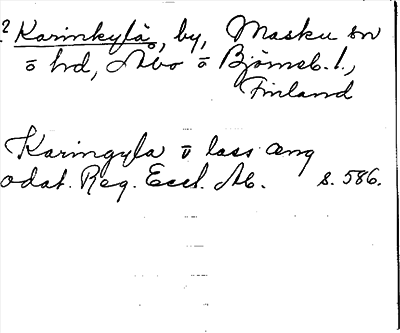 ? Karinkylä, by, Masku sn
o hd, Åbo o Björneb. l.,
Finland
Karingyla o lass æng
odat. Reg. Eccl. Ab. s. 586.